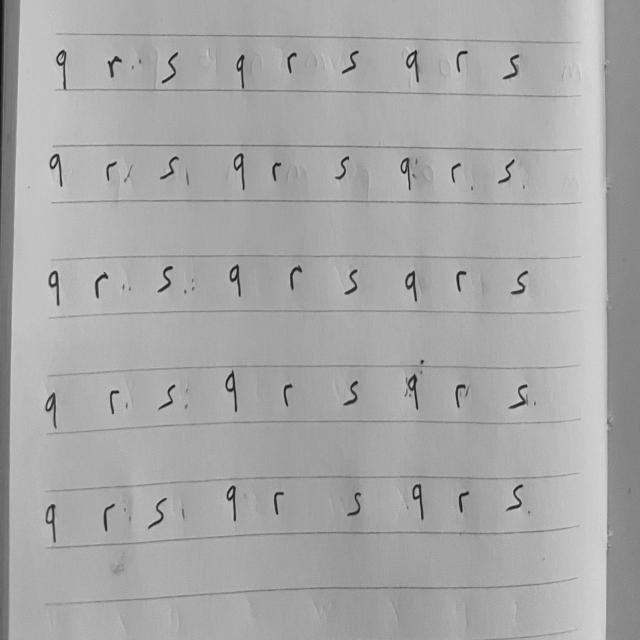 q r s q r s q r s
q r s q r s q r s
q r s q r s q r s
q r s q r s q r s
q r s q r s q r s